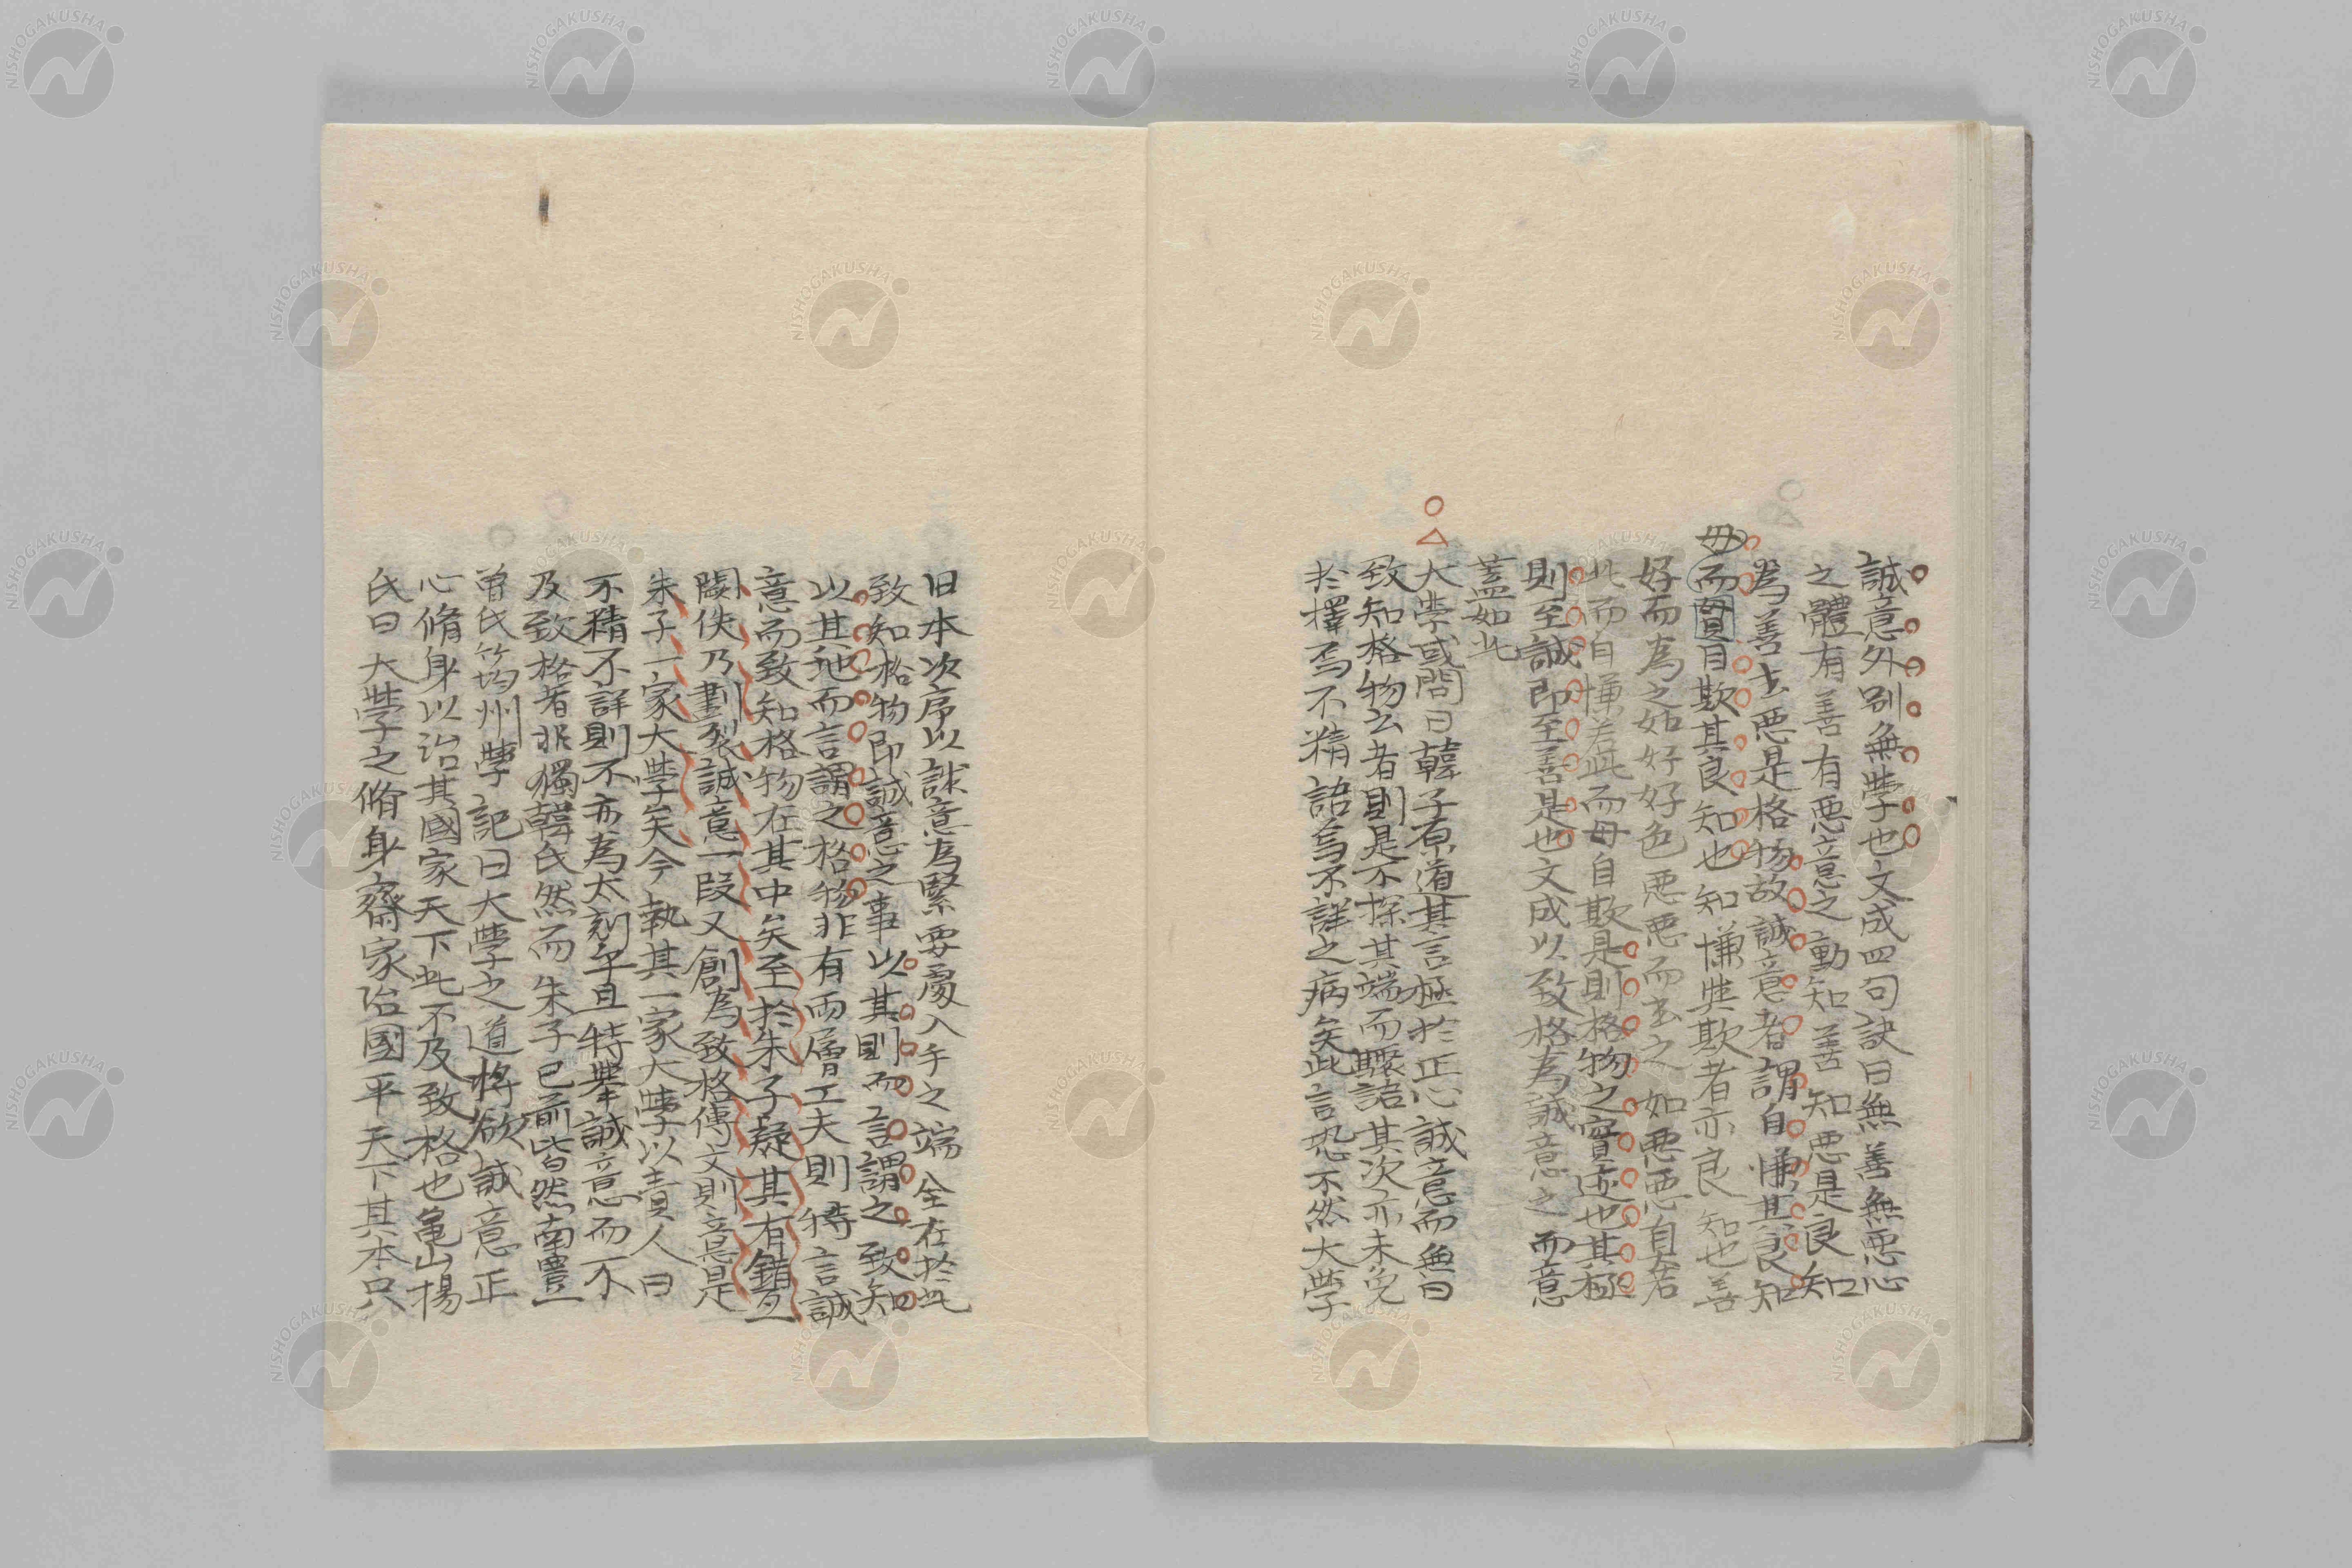 誠意外別無学也文成四句訣曰無善無悪心
之體有善有悪意之動知善知悪是良知
為善去悪是格物故誠意者謂自慊其良知
毋
而毋自欺其良知也知慊与欺者亦良知也善
好而為之如好好色悪悪而去之如悪悪自若
此而自慊若此而毋自欺是則格物之實迹也其極
則至誠即至善是也文成以致格為誠意之而意
蓋如此
大学或問曰韓子原道其言極於正心誠意而無曰
致知格物云者則是不探其端而驟語其次亦未免
於擇焉不精語焉不詳之病矣此言恐不然大学
旧本次序以誠意為緊要處入手之端全在於此
致知格物即誠意之事以其則而言謂之致知
以其他而言謂之格物非有両層工夫則特言誠
意而致知格物在其中矣至於朱子疑其有錯互
闕佚乃劃裂誠意一段又創為致格傳文則音是
朱子一家大学矣今執其一家大学以責人曰
不精不詳則不亦為太刻乎且特挙誠意而不
及致格者非獨韓氏然而朱子已前皆然南豊
曽氏筠州學記曰大学之道将欲誠意正
心脩身以治其國家天下此不及致格也亀山楊
氏曰大学之脩身齋家治國平天下其本只
NISHOGAKUSHA